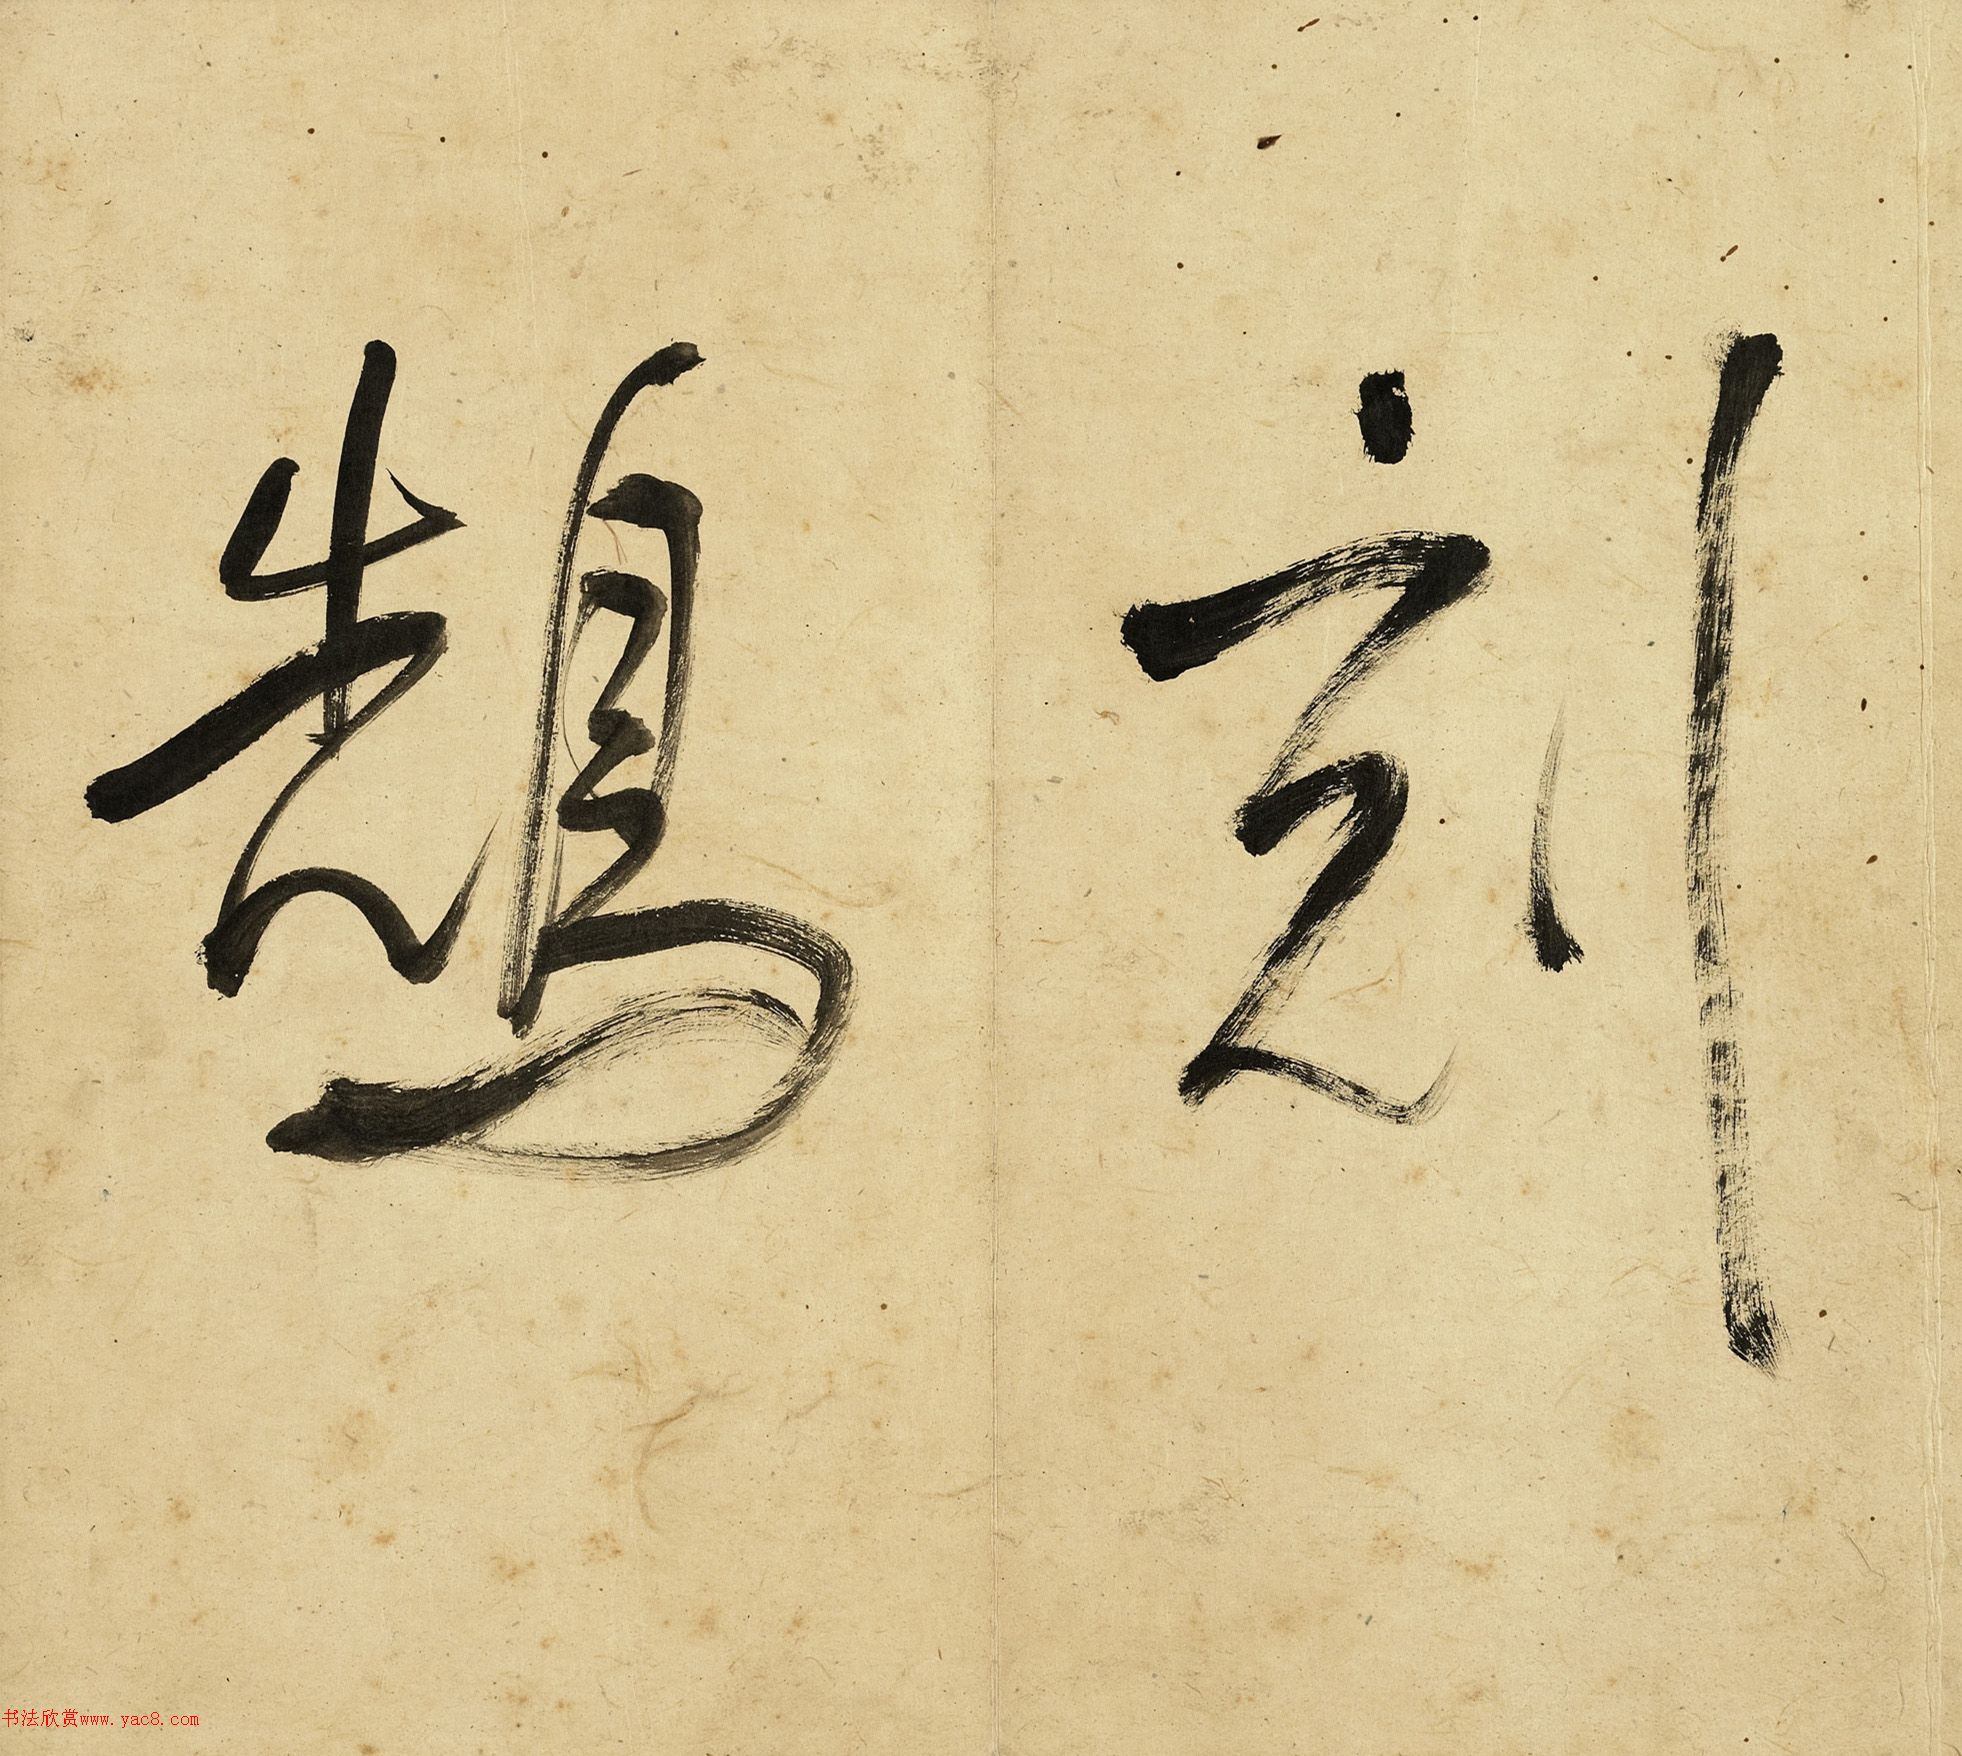 刻
鵠
书法欣赏www.yac8.com